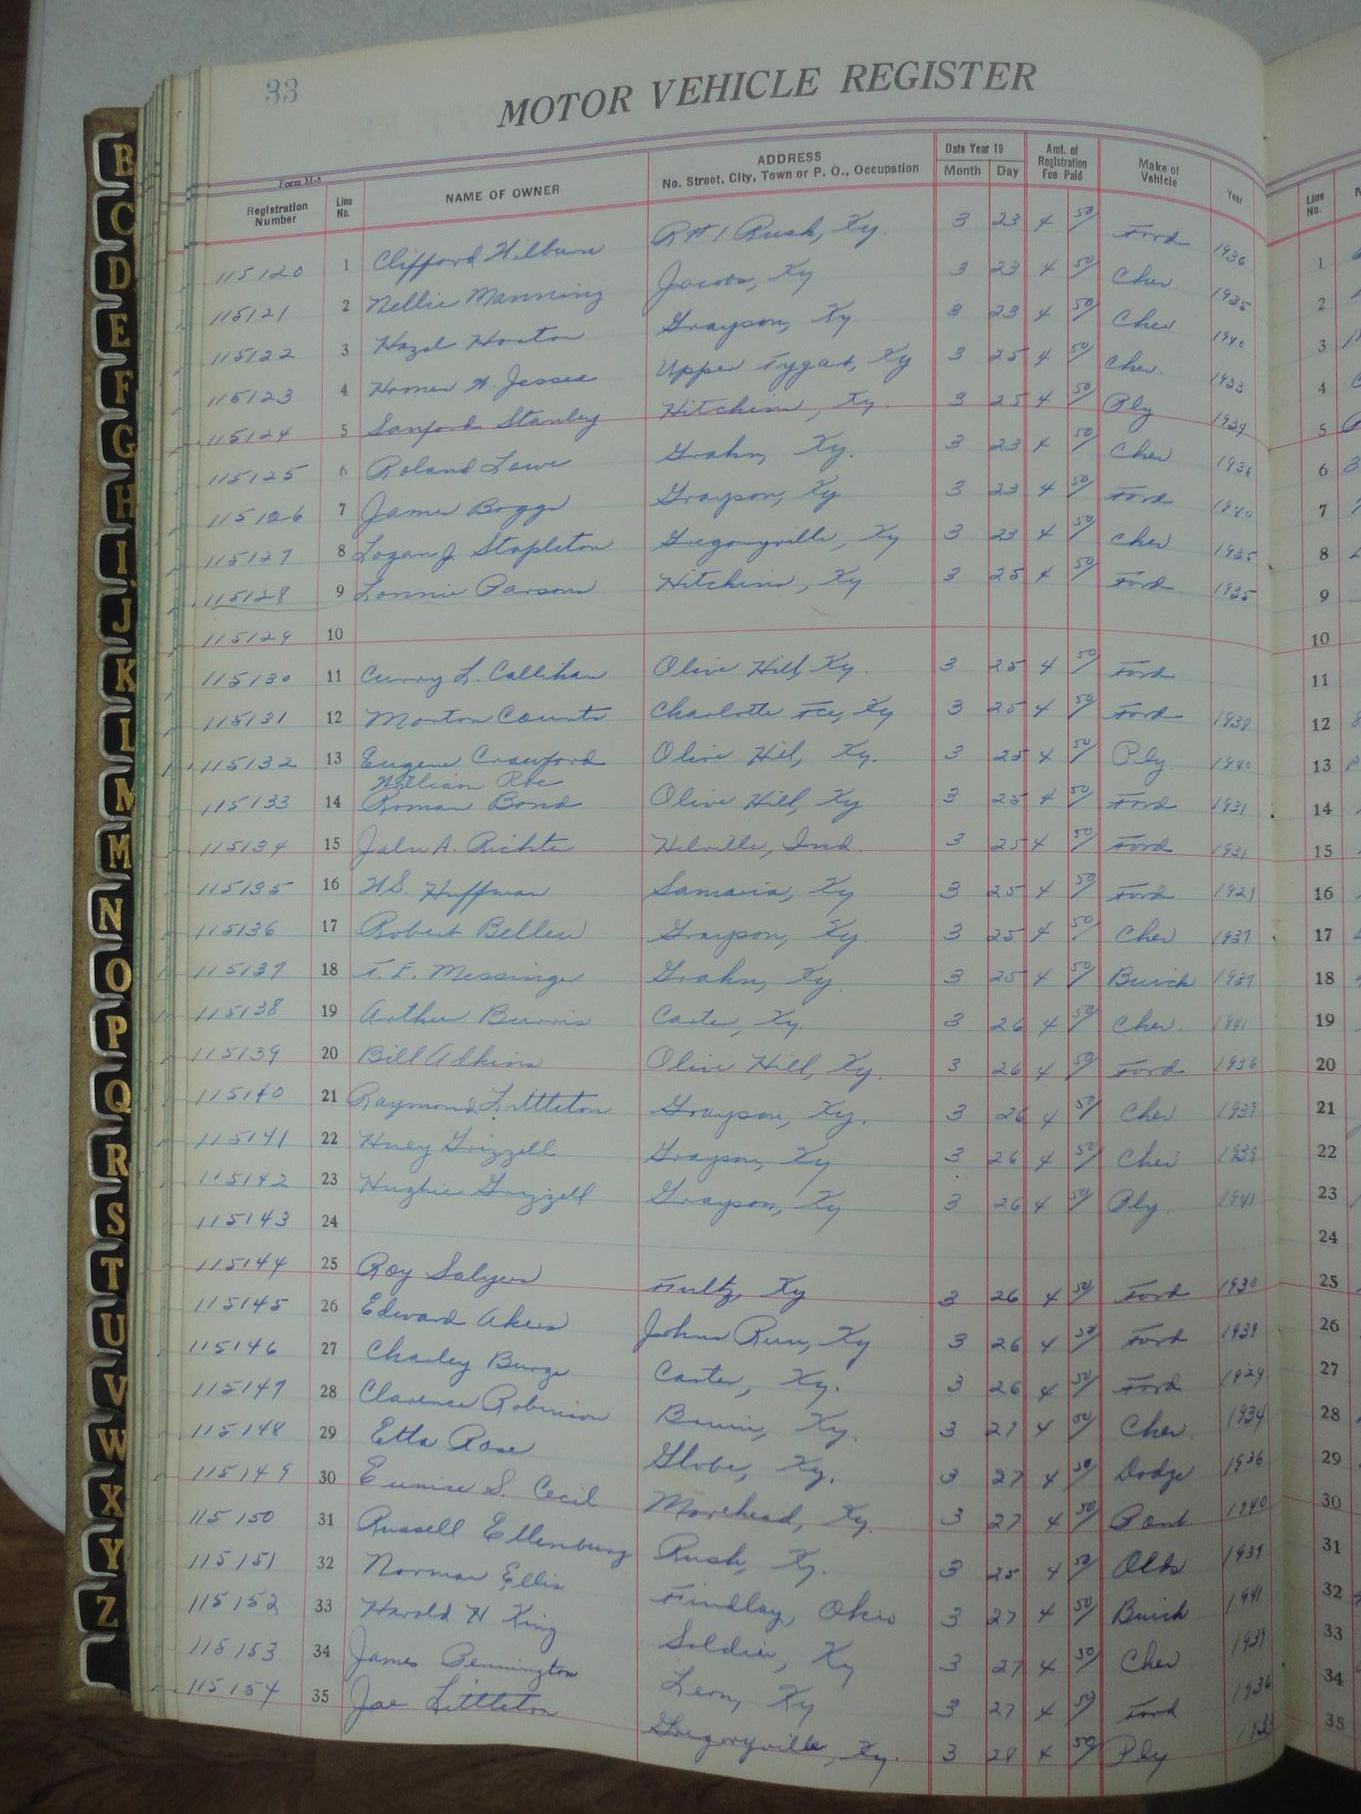 33
MOTOR VEHICLE REGISTER
Form M-8
Registration Number Line No. NAME OF OWNER ADDRESS No. Street, City, Town or P. O., Occupation Date Year 19 Month Day Amt. of Registration Fee Paid Make of Vehicle Year
115120 1 Clifford Wilburn Rt 1 Rush, Ky. 3 23 4 50/ Ford 1936
115121 2 Nellie Manning Jacobs, Ky 3 23 4 50/ Chev. 1935
115122 3 Hazel Horton Grayson, Ky 3 23 4 50/ Chev 1940
115123 4 Homer H. Jessee Upper Tygart, Ky 3 25 4 50/ Chev. 1933
115124 5 Sanford Stanley Hitchins, Ky. 3 25 4 50/ Ply 1934
115125 6 Roland Lowe Grahn, Ky. 3 23 4 50/ Chev 1936
115126 7 James Boggs Grayson, Ky 3 23 4 50/ Ford 1940
115127 8 Logan J. Stapleton Gregoryville, Ky 3 23 4 50/ Chev 1935
115128 9 Lonnie Parsons Hitchins, Ky 3 25 4 50/ Ford 1935
115129 10
115130 11 Curry L. Callihan Olive Hill, Ky. 3 25 4 50/ Ford
115131 12 Morton Counts Charlotte Fce, Ky 3 25 4 50/ Ford 1938
115132 13 Eugene Crawford Olive Hill, Ky. 3 25 4 50/ Ply. 1940
William Roe
115133 14 Roman Bond Olive Hill, Ky 3 25 4 50/ Ford 1931
115134 15 John A. Richte Ind. 3 25 4 50/ Ford 1931
115135 16 H.S. Huffman Samaria, Ky 3 25 4 50/ Ford 1929
115136 17 Robert Bellew Grayson, Ky. 3 25 4 50/ Chev 1937
115137 18 T. E. Messinger Grahn, Ky. 3 25 4 50/ Buick 1937
115138 19 Arthur Burris Carter, Ky. 3 26 4 50/ Chev. 1941
115139 20 Bill Adkins Olive Hill, Ky. 3 26 4 50/ Ford 1936
115140 21 Raymond Littleton Grayson, Ky. 3 26 4 50/ Chev 1939
115141 22 Huey Grizzell Grayson, Ky 3 26 4 50/ Chev 1939
115142 23 Hughie Grizzell Grayson, Ky 3 26 4 50/ Ply. 1941
115143 24
115144 25 Roy Salyers Fultz, Ky 3 26 4 50/ Ford 1930
115145 26 Edward Akers Johns Run, Ky 3 26 4 50/ Ford 1939
115146 27 Charley Burge Carter, Ky. 3 26 4 50/ Ford 1929
115147 28 Clarence Robinson Ky. 3 27 4 50/ Chev. 1934
115148 29 Etta Rose Globe, Ky. 3 27 4 50/ Dodge 1936
115149 30 Eunice S. Cecil Morehead, Ky. 3 27 4 50/ Pont. 1940
115150 31 Russell Ellenburg Rush, Ky. 3 25 4 50/ Olds 1939
115151 32 Norman Ellis Findlay, Ohio 3 27 4 50/ Buick 1941
115152 33 Harold H King Soldier, Ky 3 27 4 50/ Chev 1939
115153 34 James Pennington Leon, Ky 3 27 4 50/ Ford 1936
115154 35 Joe Littleton Gregoryville, Ky. 3 28 4 50/ Ply
B
C
D
E
F
G
H
I
J
K
L
M
M
N
O
P
Q
R
S
T
U
V
W
X
Y
Z
Line No.
1
2
3
4
5
6
7
8
9
10
11
12
13
14
15
16
17
18
19
20
21
22
23
24
25
26
27
28
29
30
31
32
33
34
35